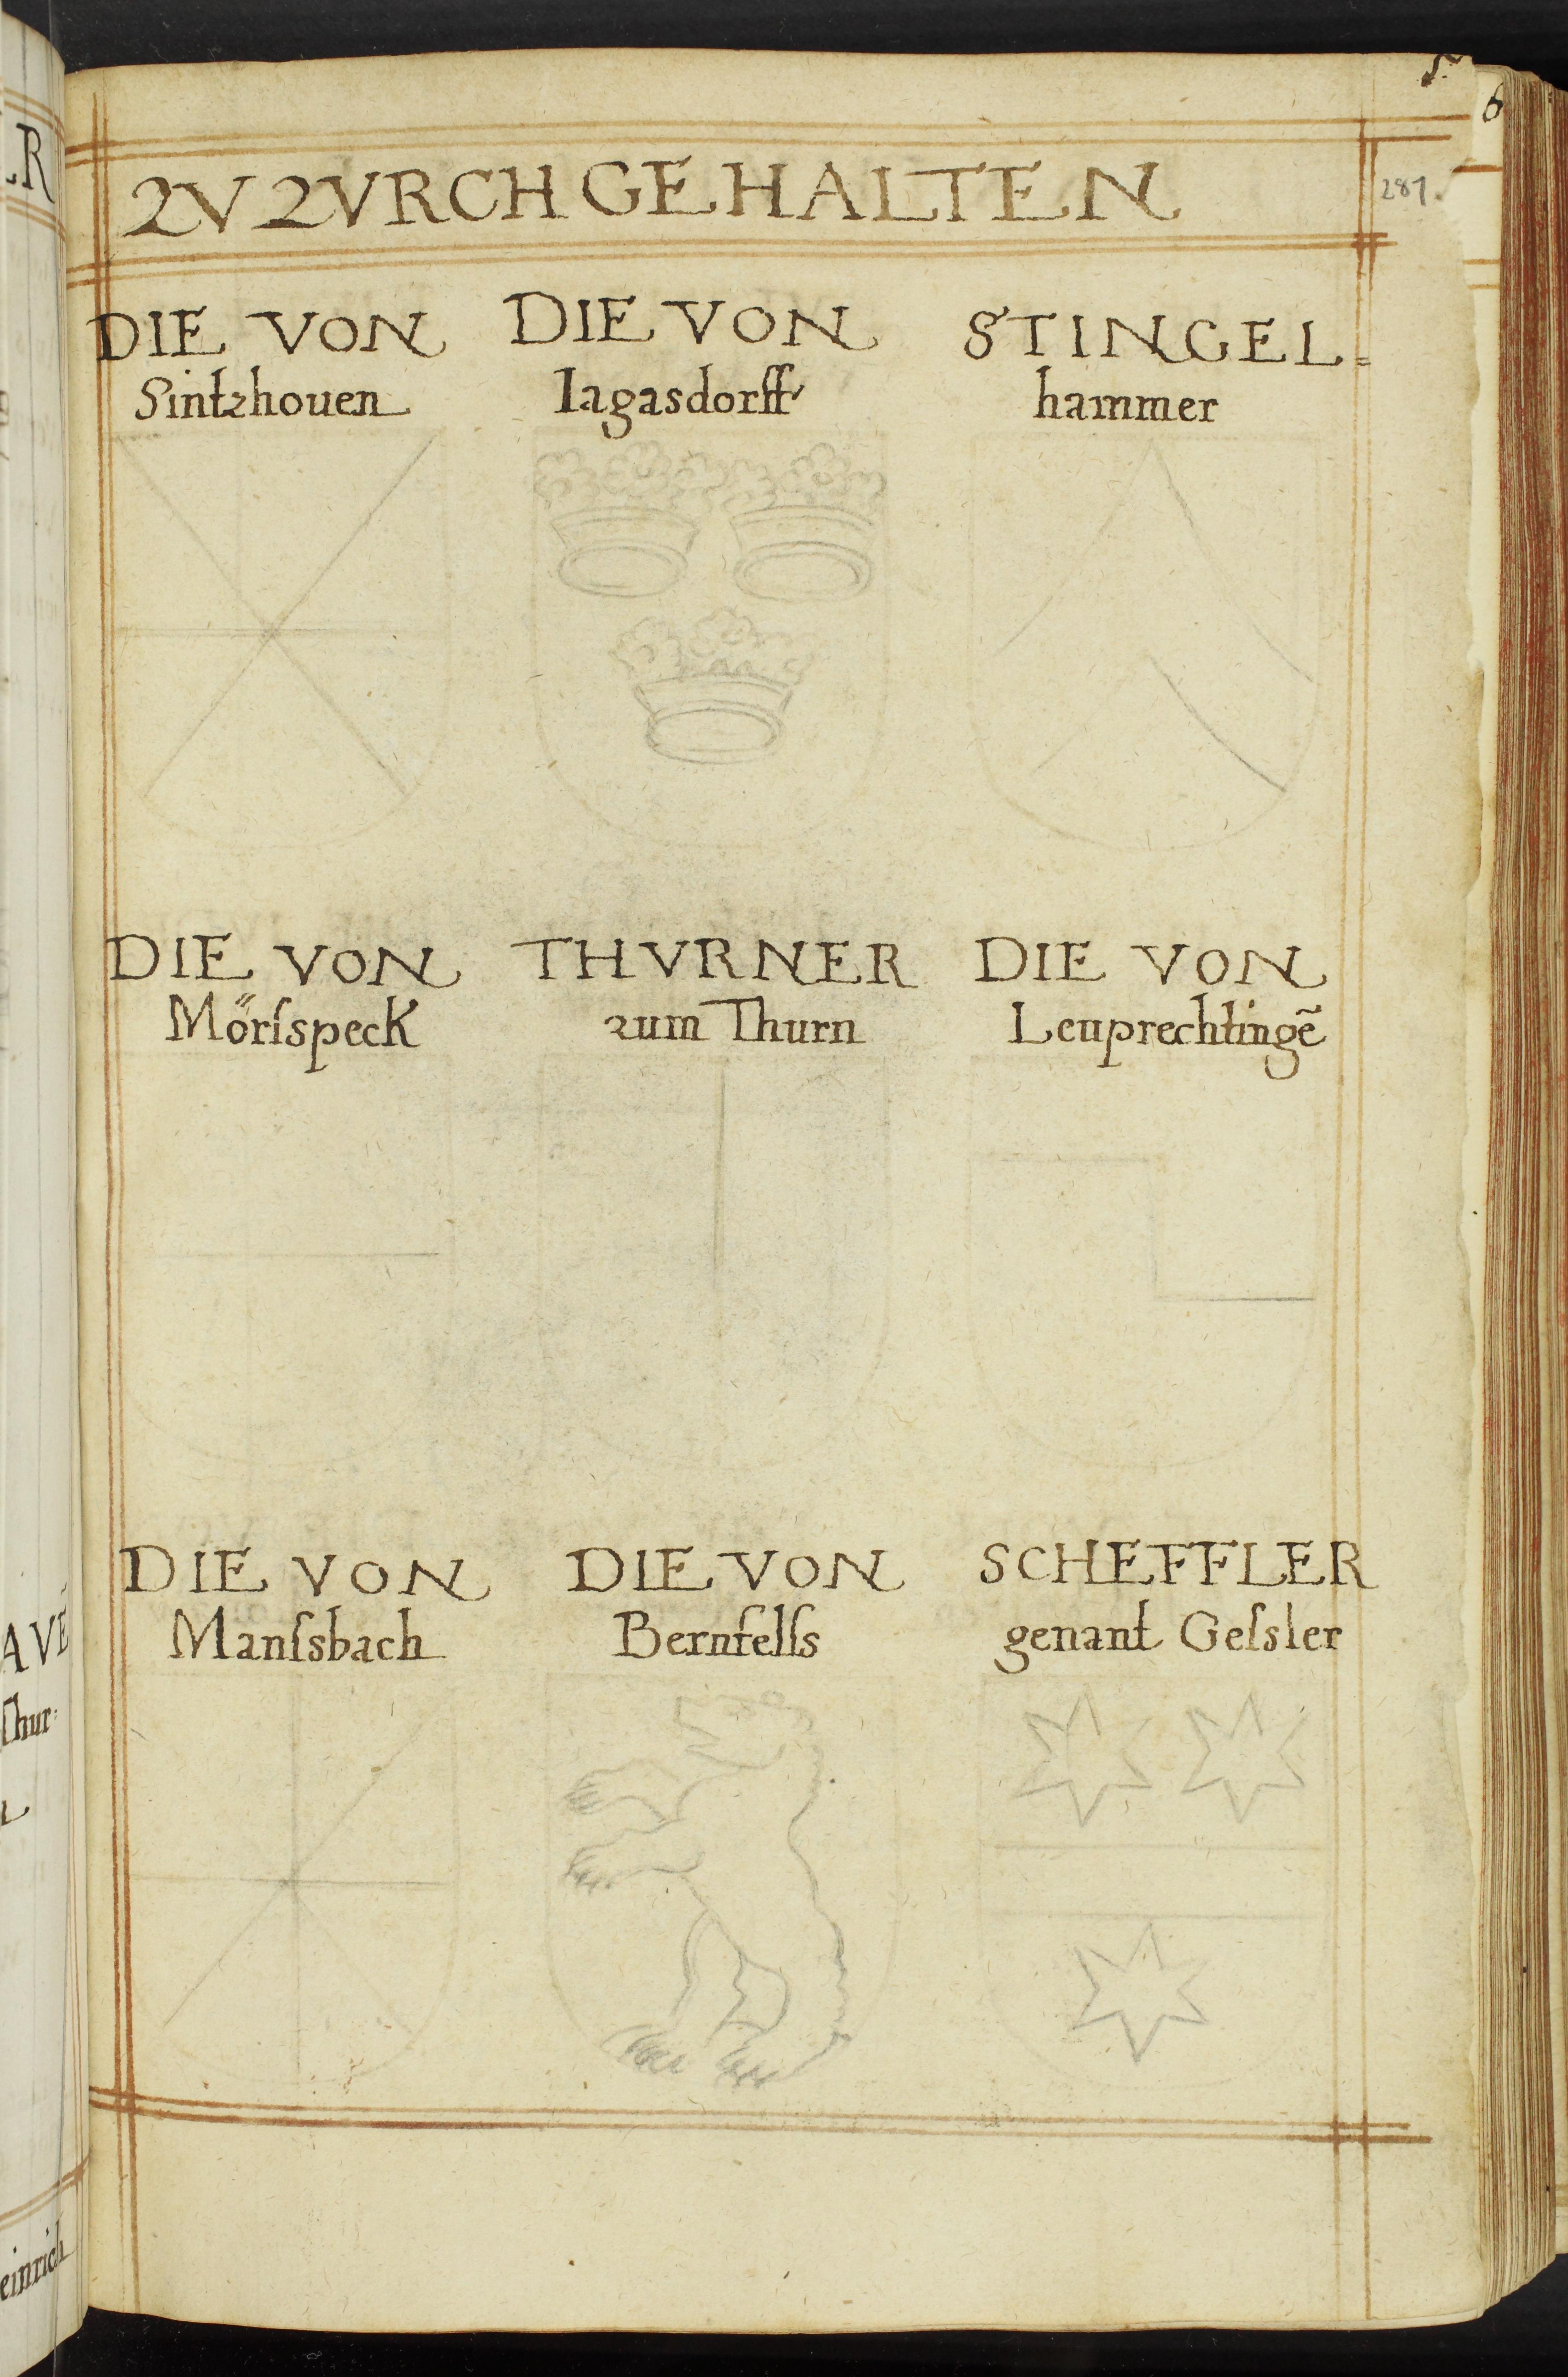 5.
6
ZV ZVRCH GEHALTEN
287.
DIE VON
Sintzhouen
DIE VON
Iagasdorff
STINGEL=
hammer
DIE VON
Mörſspeck
THVRNER
zum Thurn
DIE VON
Leuprechtingē
DIE VON
Manſsbach
DIE VON
Bernfelſs
SCHEFFLER
genant Geſsler
R
AVE
Thur=
einrich